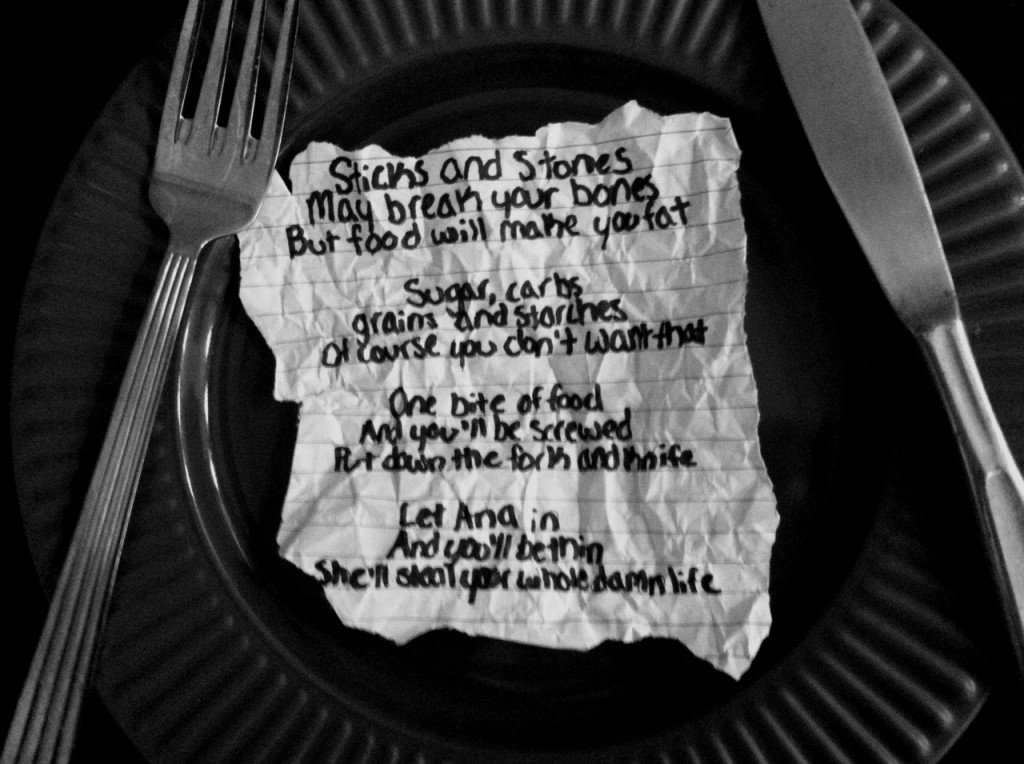 Sticks and Stones
May break your bones
But food will make you fat
Sugar, carbs
grains and starches
Of course you don't want that
One bite of food
And you'll be screwed
Put down the fork and knife
Let Ana in
And you'll be thin
She'll steal your whole damn life